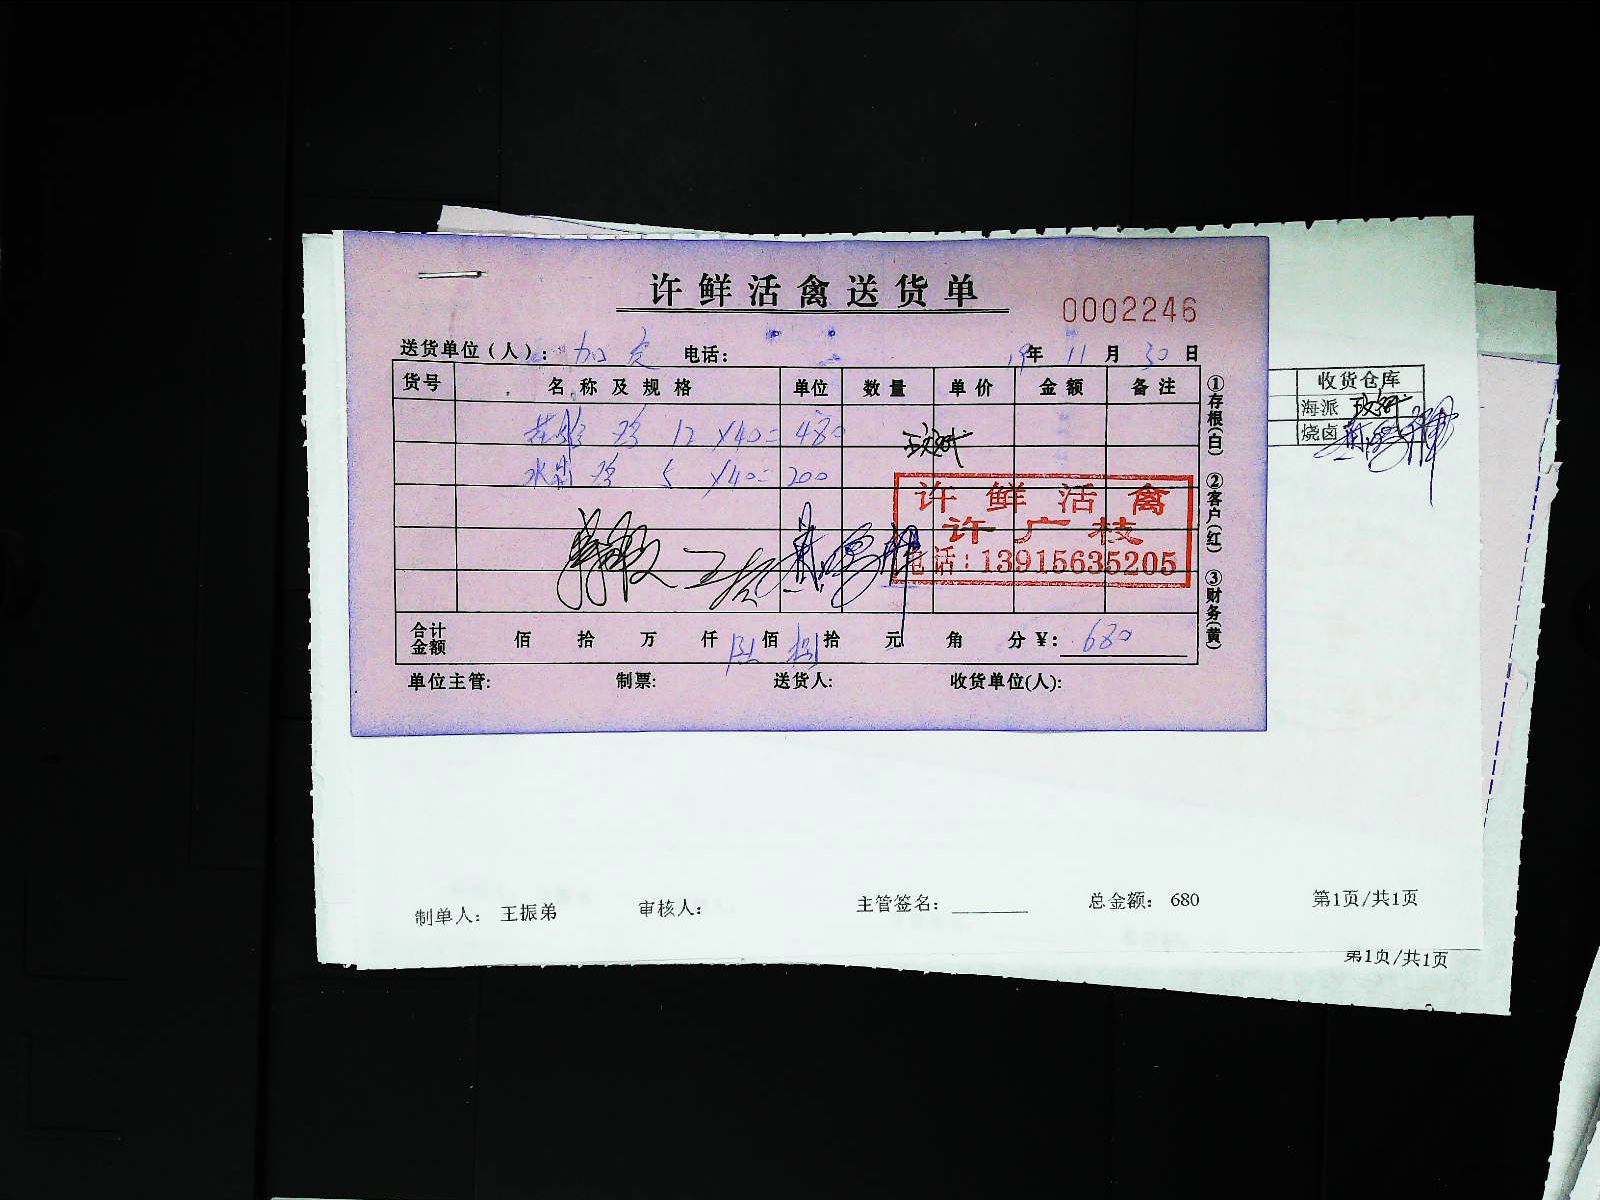 许鲜活禽送货单
0002246
送货单位(人): 加 电话: 19年 11月 30日
货号 名称及规格 单位 数量 单价 金额 备注
鸡 12 X40= 480
水 鸡 5 X40= 200
许鲜活禽
许广枝
电话:13915635205
合计金额 佰 拾 万 仟 陆佰 捌拾 元 角 分 ¥: 680
单位主管: 制票: 送货人: 收货单位(人):
①存根(白) ②客户(红) ③财务(黄)
收货仓库
海派
烧卤
制单人: 王振弟 审核人: 主管签名: 总金额: 680 第1页/共1页
第1页/共1页